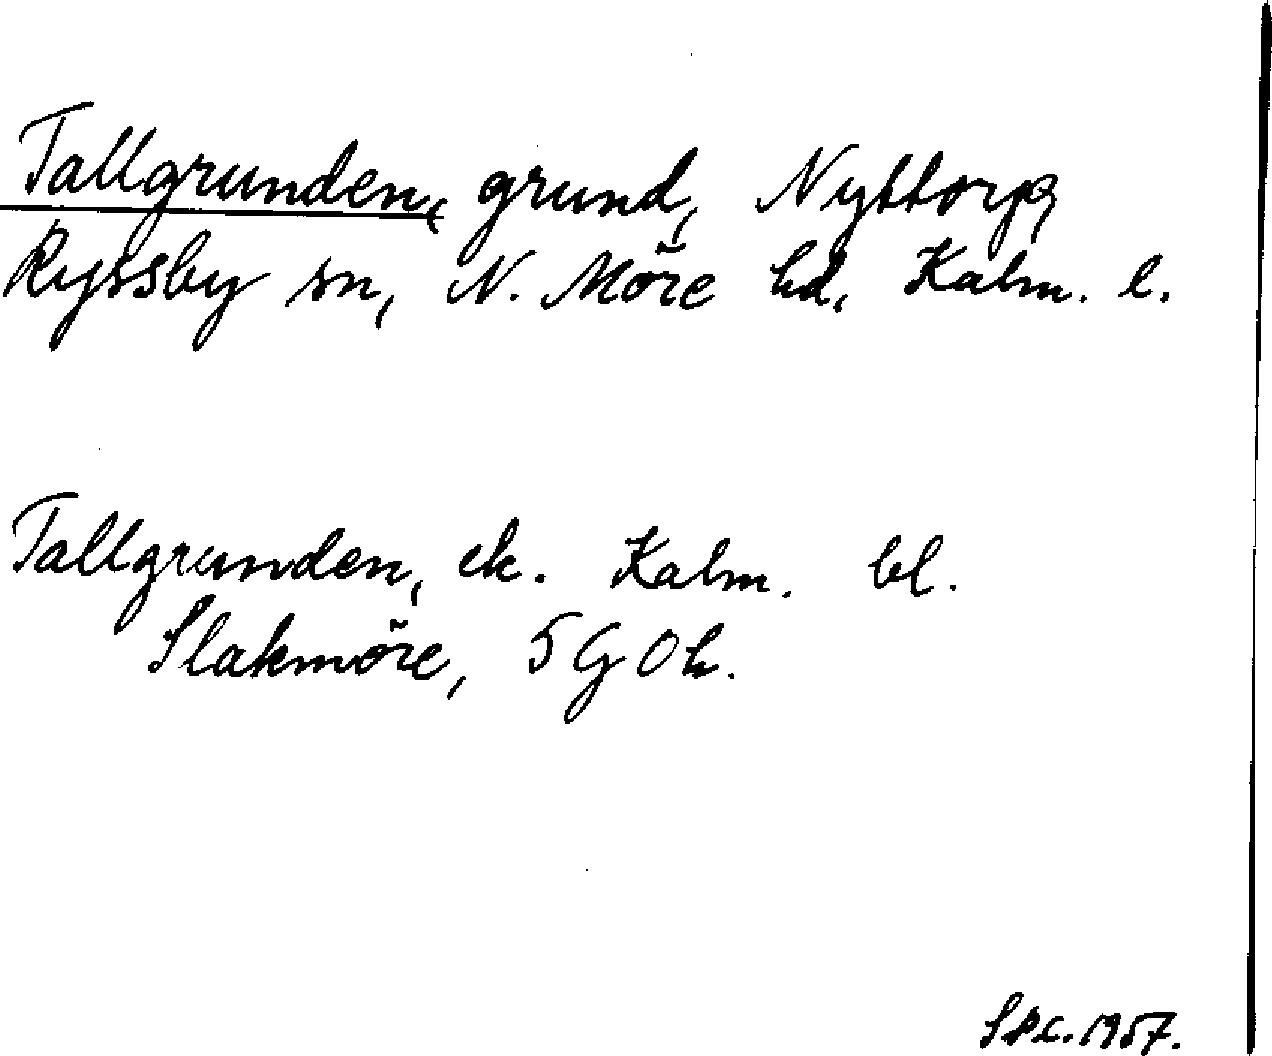 Tallgrunden, grund, Nyttorp,
Ryssby sn, N. Möre hd, Kalm. l.
Tallgrunden, ek. Kalm. bl.
Slakmöre, 5 G Oh.
1957.